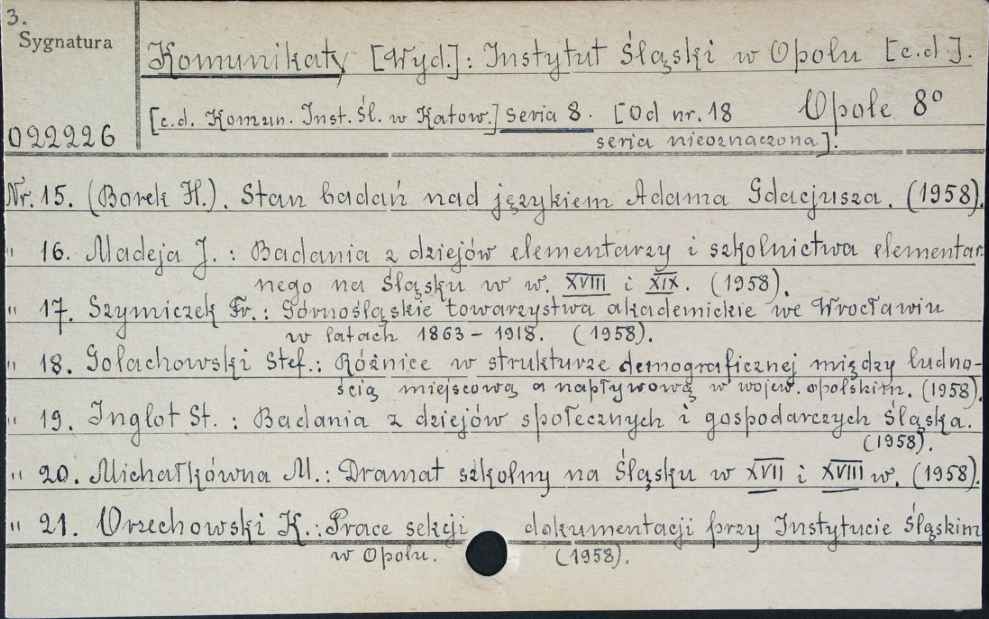 3.
Sygnatura
Komunikaty [Wyd.]: Instytut Śląski w Opolu [c.d].
[c.d. Komun. Inst. Śl. w Katow.] Seria 8. [Od nr. 18 Opole 8°
022226
seria nieoznaczona].
Nr. 15. (Borek H.). Stan badań nad językiem Adama Gdacjusza. (1958).
" 16. Madeja J. : Badania z dziejów elementarzy i szkolnictwa elementar-
nego na Śląsku w w. XVIII i XIX. (1958).
" 17. Szymiczek Fr. : Górnośląskie towarzystwa akademickie we Wrocławiu
w latach 1863 - 1918. (1958).
" 18. Golachowski Stef.: Różnice w strukturze demograficznej między ludno-
ścią miejscową a napływową w wojew. opolskim. (1958).
" 19. Inglot St. : Badania z dziejów społecznych i gospodarczych Śląska.
(1958).
" 20. Michałkówna M. : Dramat szkolny na Śląsku w XVII i XVIII w. (1958).
" 21. Orzechowski K. : Prace sekcji dokumentacji przy Instytucie Śląskim
w Opolu. (1958).